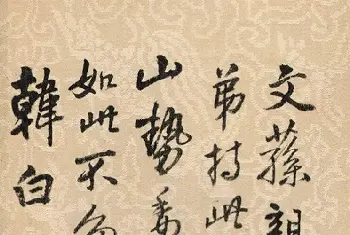 文蓀親
弟持此
山勢委
如此不
韓白